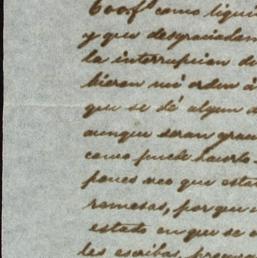 600.f como liqui
y que desgraciadam
la interrupcion de
bieran mi orden á
que se dé algun
aunque seran grav
como puede hacerlo
pues veo que esta
remesas, por que
estado en que se
les escribas,